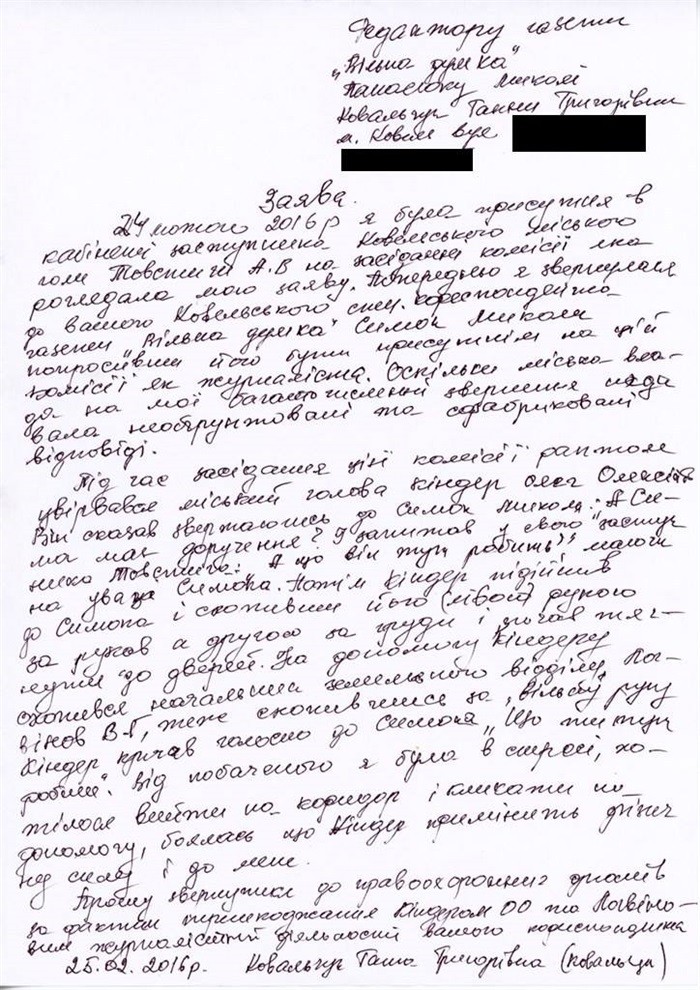 Редактору газети
„Вільна думка"
Панасюку Миколі
Ковальчук Ганни Григорівни
м. Ковель вул
Заява.
24 лютого 2016р я була присутня в
кабінеті заступника Ковельського міського
голи Товстиги А.В на засіданні комісії яка
розгледала мою заяву. Попередньо я звернулася
до вашого Ковельського спец. кореспондента
газети „Вільна думка" Симок Микола
попросивши його бути присутнім на цій
комісії як журналіста. Оскільки міська вла-
да на мої багаточисленні звернення нада
вала необґрунтовані та сфабриковані
відповіді.
Під час засідання цієї комісії раптом
увірвався міський голова Кіндер Олег Олексій
Він сказав звертаючись до Симок Микола: А Си-
ма має доручення? І запитав у свого „заступ
ника Товстига: А що він тут робить" маючи
на увазі Симока. Потім Кіндер підійшов
до Симока і схопивши його (лівою) рукою
за рукав а другою за груди і почав тяг-
нути до дверей. На допомогу Кіндеру
схопився начальник земельного відділу Лог-
вінов В.Г, теже схопившись за „вільну" руку
Кіндер кричав голосно до Симока „Що ти тут
робиш". Від побаченого я була в стресі, хо-
тілося вийти на коридор і кликати на
допомогу, боялась що Кіндер примінить фізич
ну силу і до мене.
Прошу звернутися до правоохоронних органів
за фактом перешкоджання Кіндером ОО та Логвіно-
вим журналістській діяльності вашого кореспондента
25.02.2016р. Ковальчук Ганна Григорівна (Ковальчук)